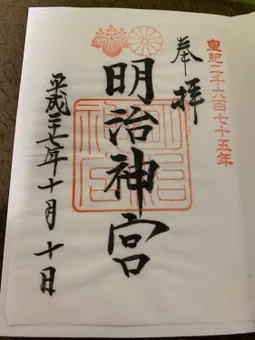 皇紀二千六百七十五年
奉拝
明治神宮
平成二十七年十月十日